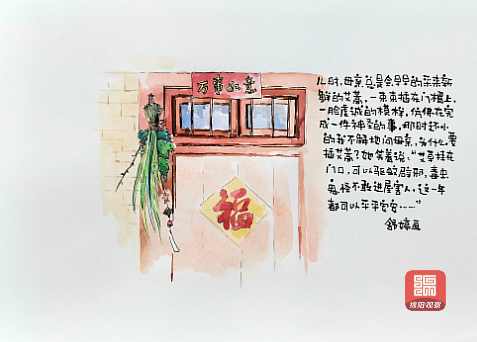 万事如意
福
儿时，母亲总是会早早的采来新
鲜的艾蒿，一束束插在门楣上，
一脸虔诚的模样，仿佛在完
成一件神圣的事，那时还小
的我不解地问母亲，为什么要
插艾蒿？她笑着说："艾草挂在
门口，可以驱蚊辟邪，毒虫
鬼怪不敢进屋害人，这一年
都可以平平安安……"
舒婷画
绵阳观察